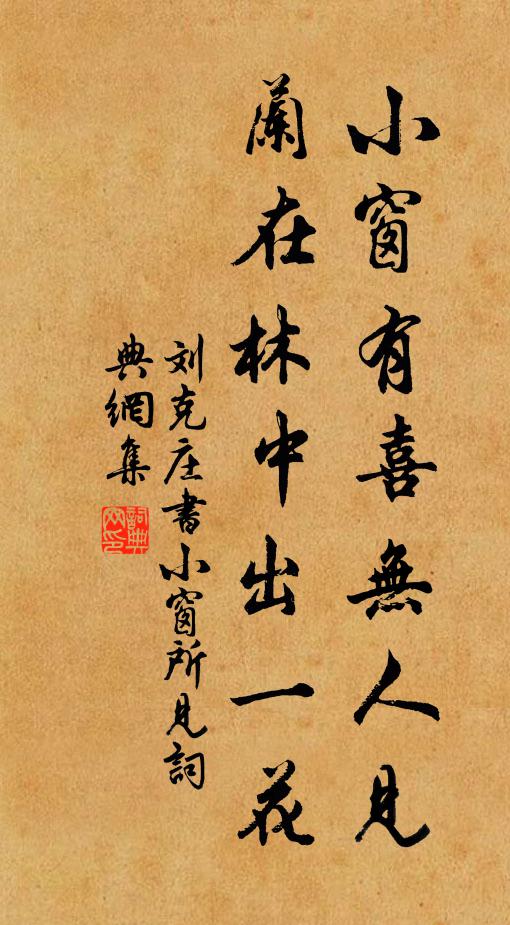 小窗有喜無人見
蘭在林中出一花
刘克庄書小窗所見詞
典網集
詞典網印